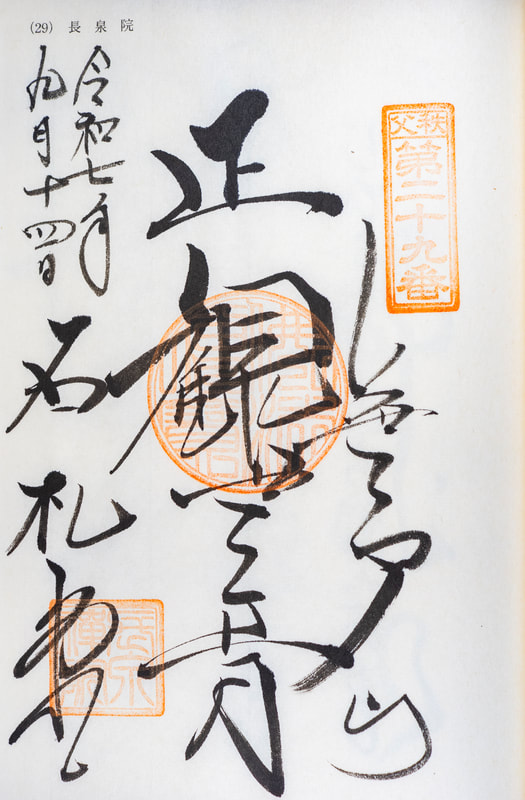 (29) 長泉院
秩父
第二十九番
山
正観世音
令和七年
九月十四日
石札堂